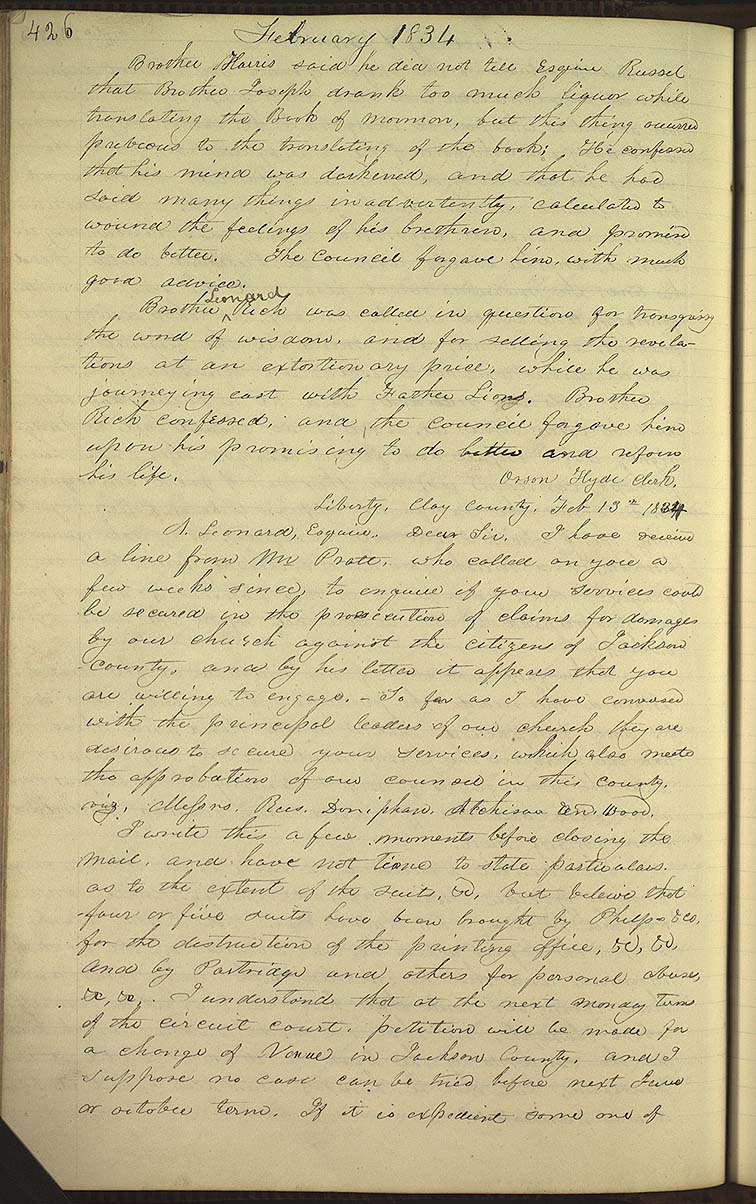 426
February 1834
Brother Harris said he did not tell Esquire Russel
that Brother Joseph drank too much liquor while
translating the Book of mormon, but this thing occurred
previous to the translating of the book; He confessed
that his mind was darkened, and that he had
said many things inadvertently, calculated to
wound the feelings of his brethren, and promised
to do better. The council forgave him, with much
good advice.
Leonard
Brother ^ Rich was called in question for transgressing
the word of wisdom, and for selling the revela-
tions at an extortionary price, while he was
journeying east with Father Lions. Brother
Rich confessed, and the council forgave him
upon his promising to do better and reform
his life. Orson Hyde clerk.
Liberty, Clay County, Feb 13th 1834
A. Leonard, Esquire. Dear Sir. I have received
a line from Mr Pratt, who called on you a
few weeks since, to enquire if your services could
be secured in the prosecution of claims for damages
by our church against the citizens of Jackson
county, and by his letter it appears that you
are willing to engage. - So far as I have conversed
with the principal leaders of our church they are
desirous to secure your services, which also meets
the approbation of our council in this county,
viz, Messrs. Rees. Doniphan, Atchison and Wood.
I write this a few moments before closing the
mail, and have not time to state particulars.
as to the extent of the suits, &c, but believe that
four or five suits have been brought by Phelps & co,
for the distruction of the printing office, &c, &c,
and by Partridge and others for personal abuse,
&c, &c,. I understand that at the next Monday term
of the circuit court, petition will be made for
a change of Venue in Jackson County, and I
suppose no case can be tried before next June
or october term. If it is expedient some one of